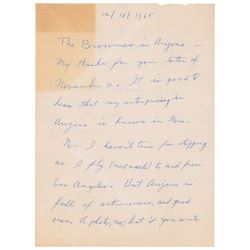 12/13/1965
The Brownies in Arizona —
My thanks for your letter of
November 11. It is good to
hear that my enterprising in
Arizona is known in
No — I haven't time for stopping
as I fly (not much) to and from
Los Angeles. But Arizona is
full of astronomers, and good
ones. A photo, no; but if you write